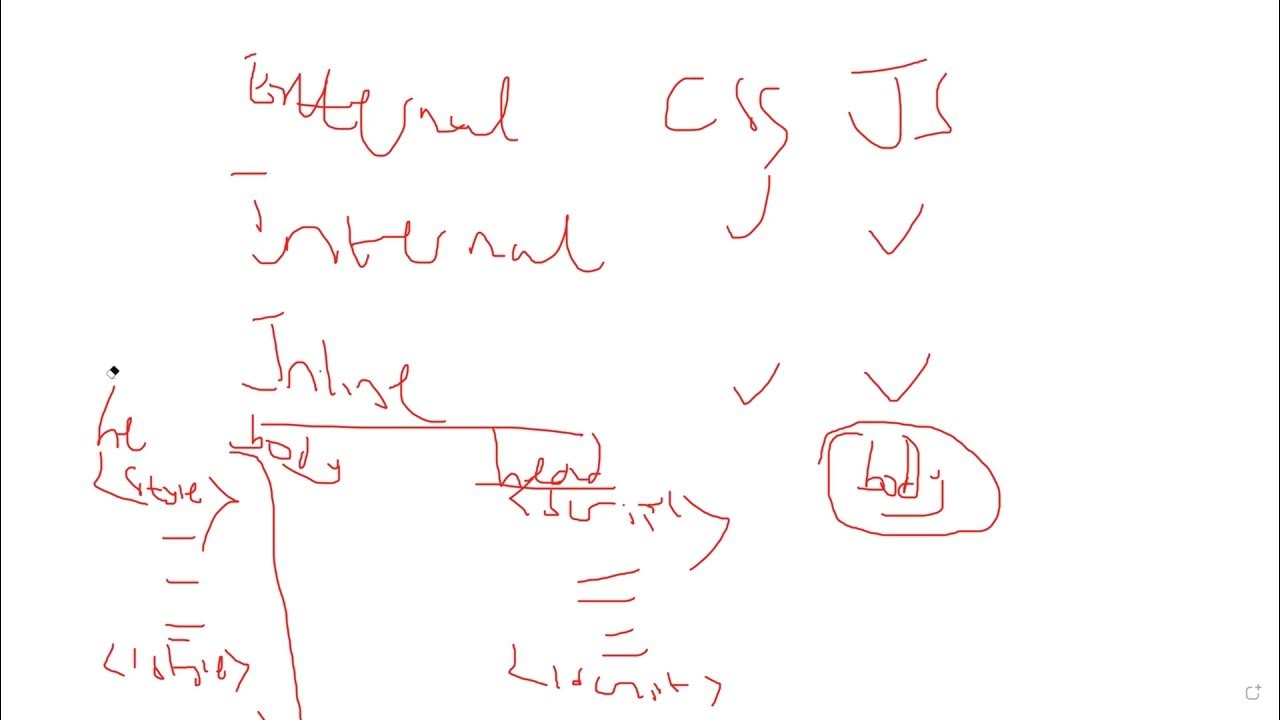 External CSS JS
Internal
Inline
he body head body
<style> <script>
</style> </script>